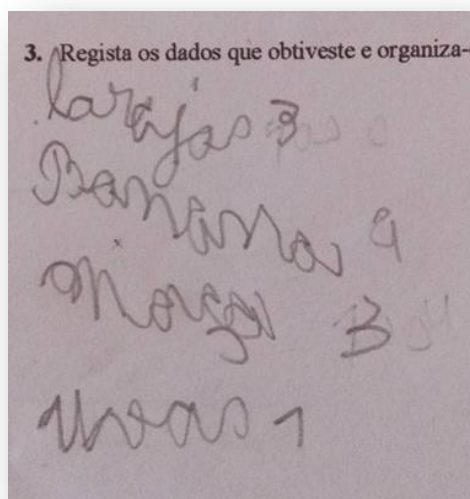 3. Regista os dados que obtiveste e organiza-
larajas 3
Banana 4
Maçã 3
uvas 1